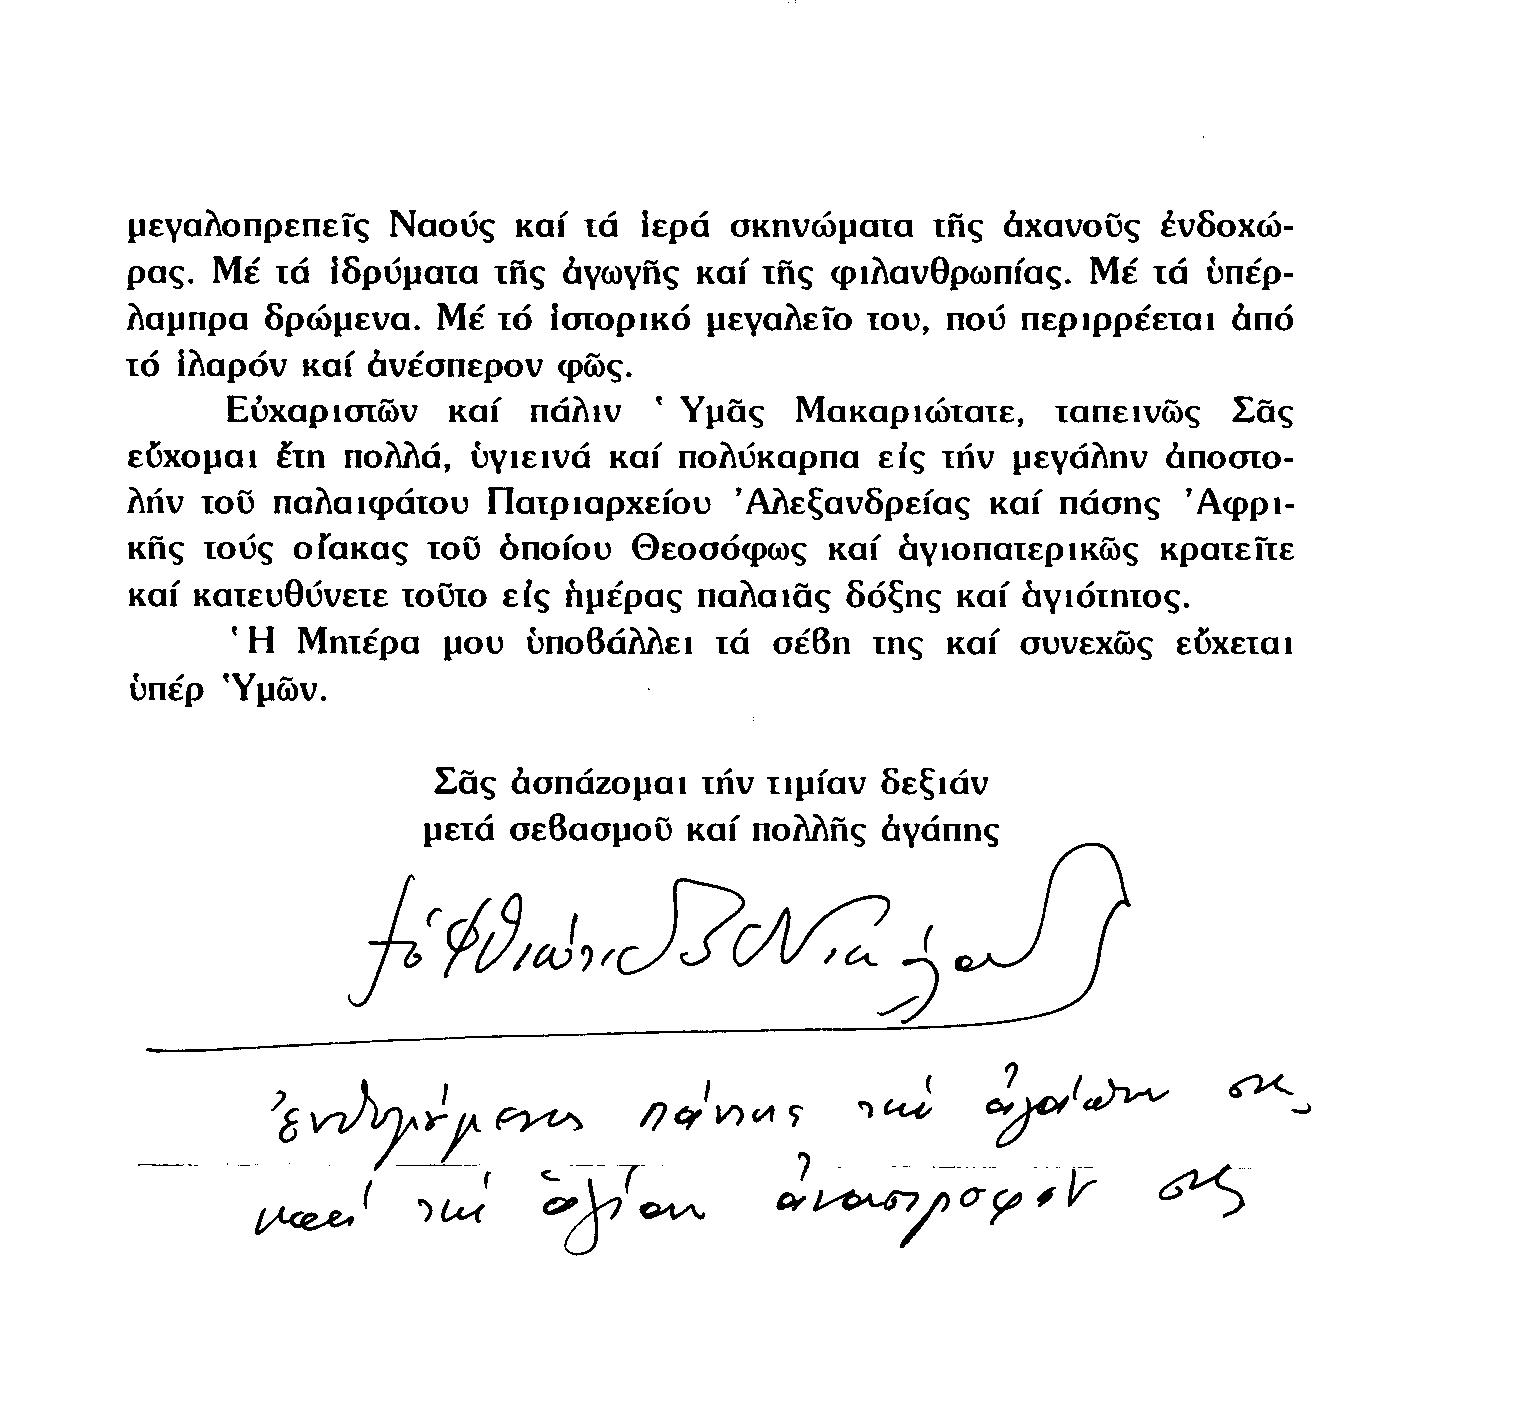 μεγαλοπρεπεῖς Ναούς καί τά ἱερά σκηνώματα τῆς ἀχανοῦς ἐνδοχώ-
ρας. Μέ τά ἱδρύματα τῆς ἀγωγῆς καί τῆς φιλανθρωπίας. Μέ τά ὑπέρ-
λαμπρα δρώμενα. Μέ τό ἱστορικό μεγαλεῖο του, πού περιρρέεται ἀπό
τό ἱλαρόν καί ἀνέσπερον φῶς.
Εὐχαριστῶν καί πάλιν Ὑμᾶς Μακαριώτατε, ταπεινῶς Σᾶς
εὔχομαι ἔτη πολλά, ὑγιεινά καί πολύκαρπα εἰς τήν μεγάλην ἀποστο-
λήν τοῦ παλαιφάτου Πατριαρχείου Ἀλεξανδρείας καί πάσης Ἀφρι-
κῆς τούς οἴακας τοῦ ὁποίου Θεοσόφως καί ἁγιοπατερικῶς κρατεῖτε
καί κατευθύνετε τοῦτο εἰς ἡμέρας παλαιᾶς δόξης καί ἁγιότητος.
Ἡ Μητέρα μου ὑποβάλλει τά σέβη της καί συνεχῶς εὔχεται
ὑπέρ Ὑμῶν.
Σᾶς ἀσπάζομαι τήν τιμίαν δεξιάν
μετά σεβασμοῦ καί πολλῆς ἀγάπης
† ὁ Φθιώτιδος Νικόλαος
ἐνθυμούμενος πάντας τήν ἀγάπην σας
καί τήν ἁγίαν ἀναστροφήν σας